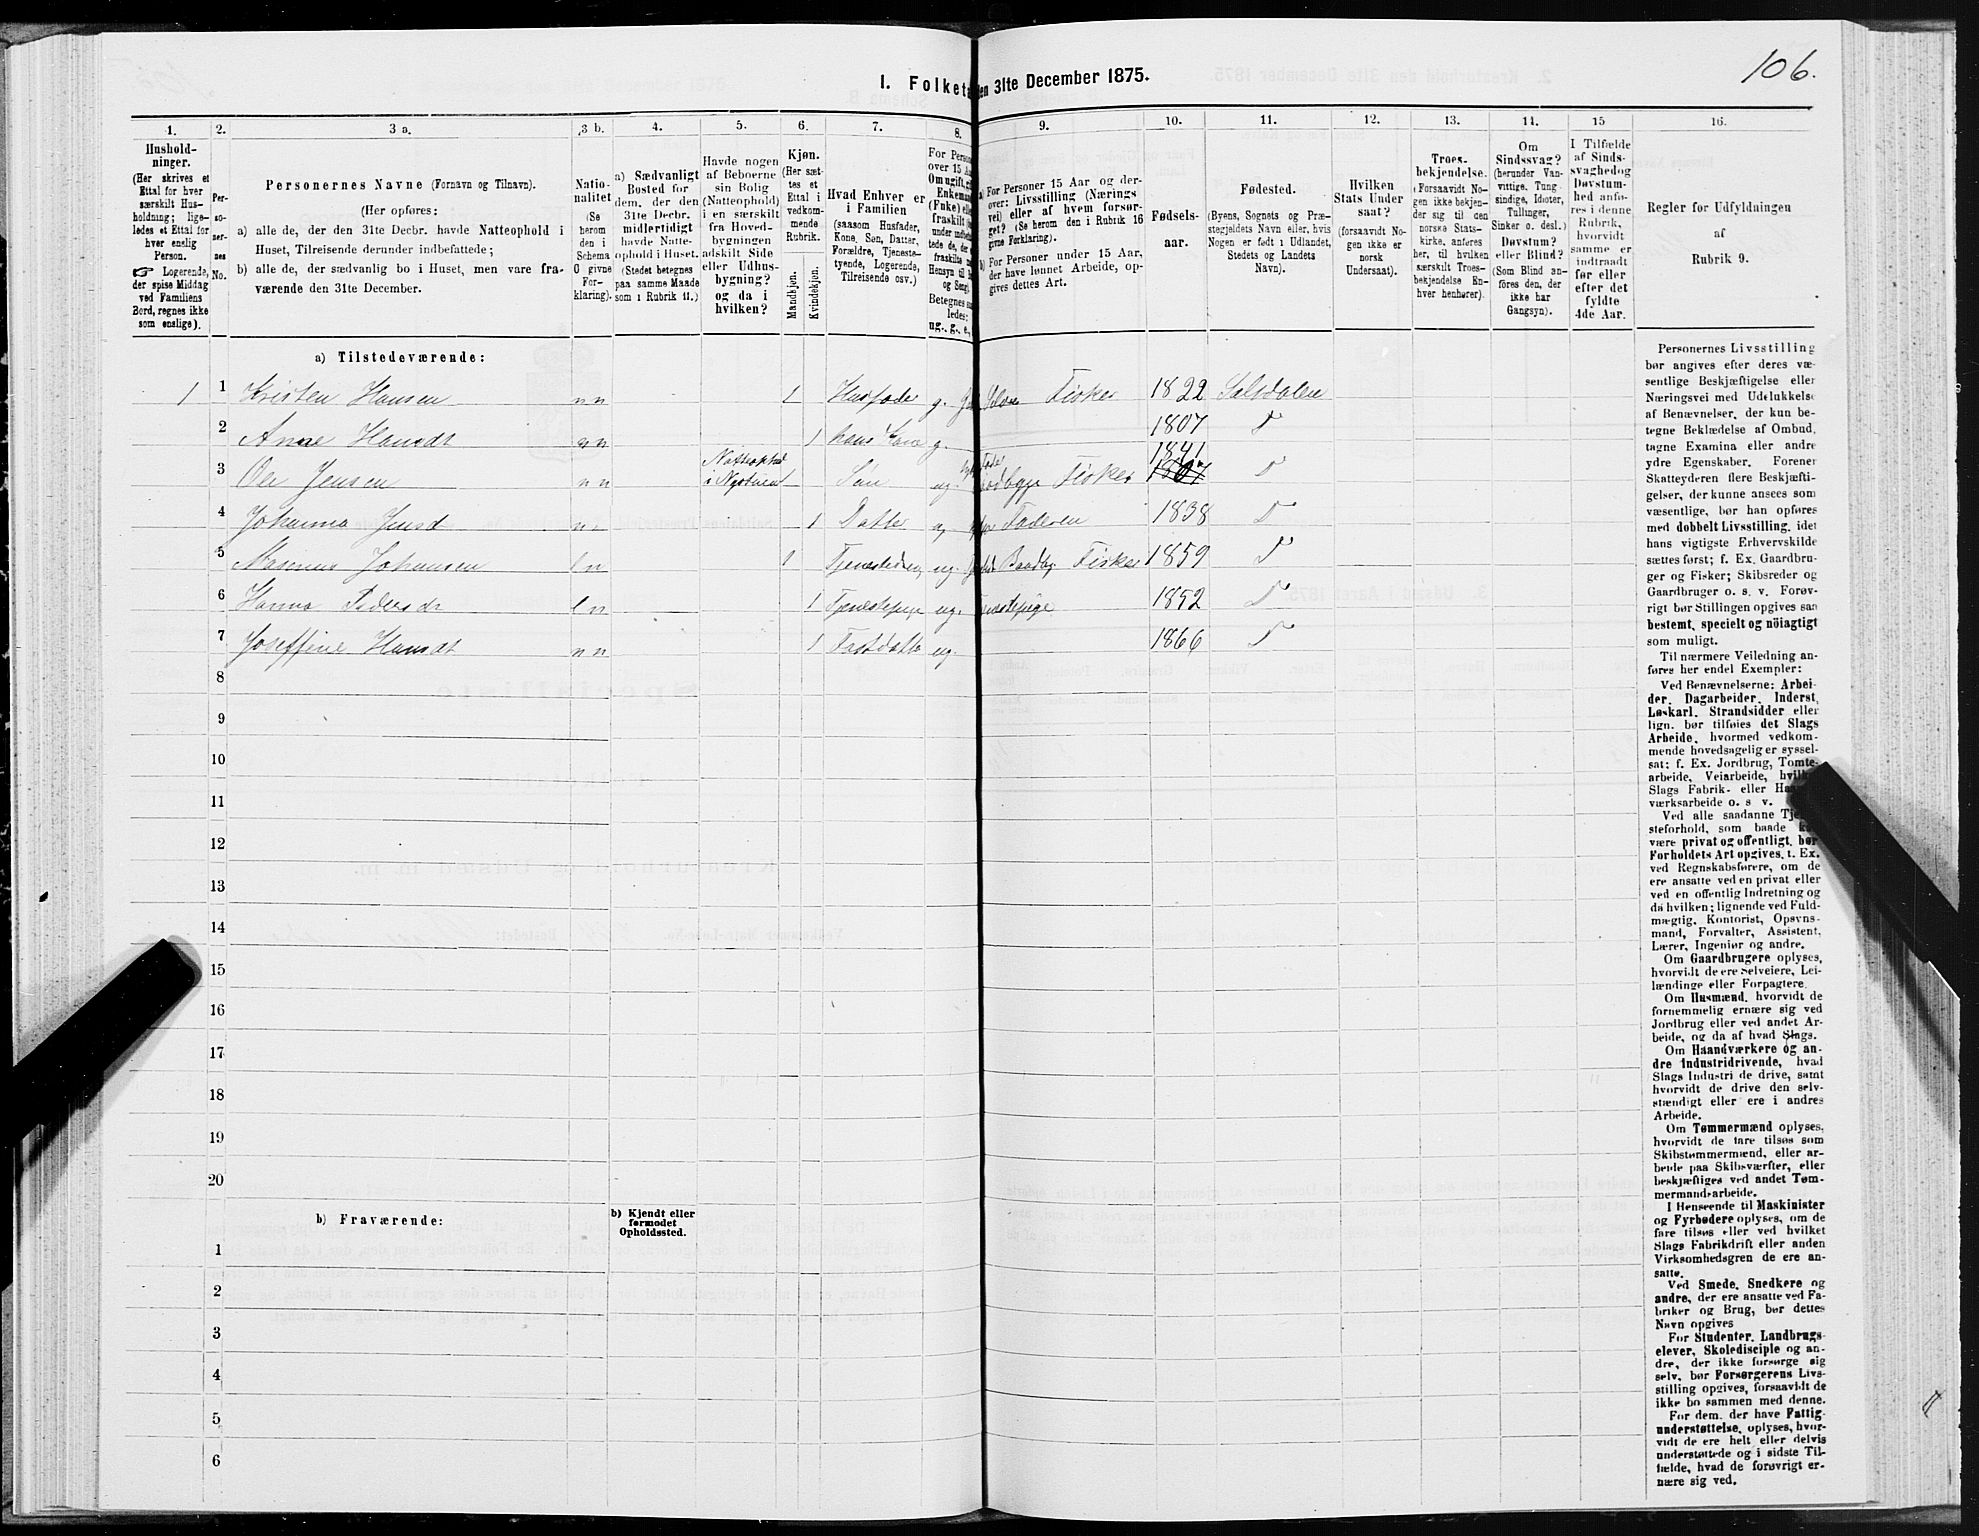 106.
I. Folketa den 31te December 1875.
1. 2. 3 a. 3 b. 4. 5. 6. 7. 8. 9. 10. 11. 12. 13. 14. 15 16.
Hushold-
ninger.
(Her skrives et
Ettal for hver
særskilt Hus-
holdning; lige-
ledes et Ettal for
hver enslig
Person.
☞ Logerende,
der spise Middag
ved Familiens
Bord, regnes ikke
som enslige).
Per-
so-
ner-
nes
No.
Personernes Navne (Fornavn og Tilnavn).
(Her opføres:
a) alle de, der den 31te Decbr. havde Natteophold i
Huset, Tilreisende derunder indbefattede;
b) alle de, der sædvanlig bo i Huset, men vare fra-
værende den 31te December.
Natio-
nalitet
(Se
herom
den i
Schema
O givne
For-
klaring).
a) Sædvanligt
Bosted for
dem, der den
31te Decbr.
midlertidigt
havde Natte-
ophold i Huset.
(Stedet betegnes
paa samme Maade
som i Rubrik 11.)
Havde nogen
af Beboerne
sin Bolig
(Natteophold)
i en særskilt
fra Hoved-
bygningen
adskilt Side
eller Udhus-
bygning?
og da i
hvilken?
Kjøn.
(Her sæt-
tes et
Ettal i
vedkom-
mende
Rubrik.
Mandkjøn.
Kvindekjøn.
Hvad Enhver er
i Familien
(saasom Husfader,
Kone, Søn, Datter,
Forældre, Tjeneste-
tyende, Logerende,
Tilreisende osv.)
For Person
over 15 Aa
Om ugift, gi
Enkeman
(Enke) elle
fraskilt
Betegnes sa
ledes:
ug., g., e,
a) For Personer 15 Aar og der-
over: Livsstilling (Nærings-
vei) eller af hvem forsør-
get? (Se herom den i Rubrik 16
givne Forklaring).
b) For Personer under 15 Aar,
der have lønnet Arbeide, op-
gives dettes Art.
Fødsels-
aar.
Fødested.
(Byens, Sognets og Præ-
stegjeldets Navn eller, hvis
Nogen er født i Udlandet,
Stedets og Landets
Navn).
Hvilken
Stats Under
saat?
(forsaavidt No-
gen ikke er
norsk
Undersaat).
Troes-
bekjendelse.
(Forsaavidt No-
gen ikke bekjen-
der sig til den
norske Stats-
kirke, anføres
her, til hvilken
særskilt Troes-
bekjendelse En-
hver henhører).
Om
Sindssvag?
(herunder Van-
vittige, Tung-
sindige, Idioter,
Tullinger,
Sinker o. desl.)
Døvstum?
eller Blind?
(Som Blind an-
føres den, der
ikke har
Gangsyn).
I Tilfælde
af Sinds-
svaghed og
Døvstum-
hed anfø-
res i denne
Rubrik,
hvorvidt
samme er
indtraadt
før eller
efter det
fyldte
4de Aar.
Regler for Udfyldningen
af
Rubrik 9.
a) Tilstedeværende:
1 1 Kristen Hansen nn 1 Husfader g. Fisker 1822 Salsdalen
2 Anne Hansdt nn 1 hans Kone g. 1807
3 Ole Jensen nn Søn ug. Fisker 1841 1807
4 Johanna Jensd nn 1 Datter ug Faderen 1838
5 Rasmus Johansen ln 1 ug. Fisker 1859
6 Hanna Pedersdt ln 1 Tjenestepige ug. Tjenestepige 1852
7 Joseffine Hansdt nn 1 ug. 1866
8
9
10
11
12
13
14
15
16
17
18
19
20
b) Fraværende:
b) Kjendt eller
formodet
Opholdssted.
1
2
3
4
5
6
Personernes Livsstilling
bør angives efter deres væ-
sentlige Beskjæftigelse eller
Næringsvei med Udelukkelse
af Benævnelser, der kun be-
tegne Beklædelse af Ombud,
tagne Examina eller andre
ydre Egenskaber. Forener
Skatteyderen flere Beskjæfti-
gelser, der kunne ansees som
væsentlige, bør han opføres
med dobbelt Livsstilling, idet
hans vigtigste Erhvervskilde
sættes først; f. Ex. Gaardbru-
ger og Fisker; Skibsreder og
Gaardbruger o. s. v. Forøv-
rigt bør Stillingen opgives saa
bestemt, specielt og nöiagtigt
som muligt.
Til nærmere Veiledning an-
føres her endel Exempler:
Ved Benævnelserne: Arbei-
der, Dagarbeider, Inderst,
Løskarl, Strandsidder eller
lign. bør tilføies det Slags
Arbeide, hvormed vedkom-
mende hovedsagelig er syssel-
sat; f. Ex. Jordbrug, Tomte-
arbeide, Veiarbeide, hvilket
Slags Fabrik- eller Haand-
værksarbeide o. s v.
Ved alle saadanne Tjene-
steforhold, som baade kan
være privat og offentligt, bør
Forholdets Art opgives, t. Ex.
ved Regnskabsførere, om de
ere ansatte ved en privat eller
ved en offentlig Indretning og
da hvilken; lignende ved Fuld-
mægtig, Kontorist, Opsyns-
mand, Forvalter, Assistent,
Lærer, Ingeniør og andre.
Om Gaardbrugere oplyses,
hvorvidt de ere Selveiere, Lei-
lændinge eller Forpagtere.
Om Husmænd, hvorvidt de
fornemmelig ernære sig ved
Jordbrug eller ved andet Ar-
beide, og da af hvad Slags.
Om Haandværkere og an-
dre Industridrivende, hvad
Slags Industri de drive, samt
hvorvidt de drive den selv-
stændigt eller ere i andres
Arbeide.
Om Tømmermænd oplyses,
hvorvidt de fare tilsøs som
Skibstømmermænd, eller ar-
beide paa Skibsværfter, eller
beskjæftiges ved andet Tøm-
mermandsarbeide.
I Henseende til Maskinister
og Fyrbødere oplyses, om de
fare tilsøs eller ved hvilket
Slags Fabrikdrift eller anden
Virksomhedsgren de ere an-
satte.
Ved Smede, Snedkere og
andre, der ere ansatte ved Fa-
briker og Brug, bør dettes
Navn opgives
For Studenter, Landbrugs-
elever, Skoledisciple og an-
dre, der ikke forsørge sig
selv, bør Forsørgerens Livs-
stilling opgives, forsaavidt de
ikke bo sammen med denne.
For dem, der have Fattig-
understøttelse, oplyses, hvor-
vidt de ere helt eller delvis
understøttede og i sidste Til-
fælde, hvad de forøvrigt er-
nære sig ved.